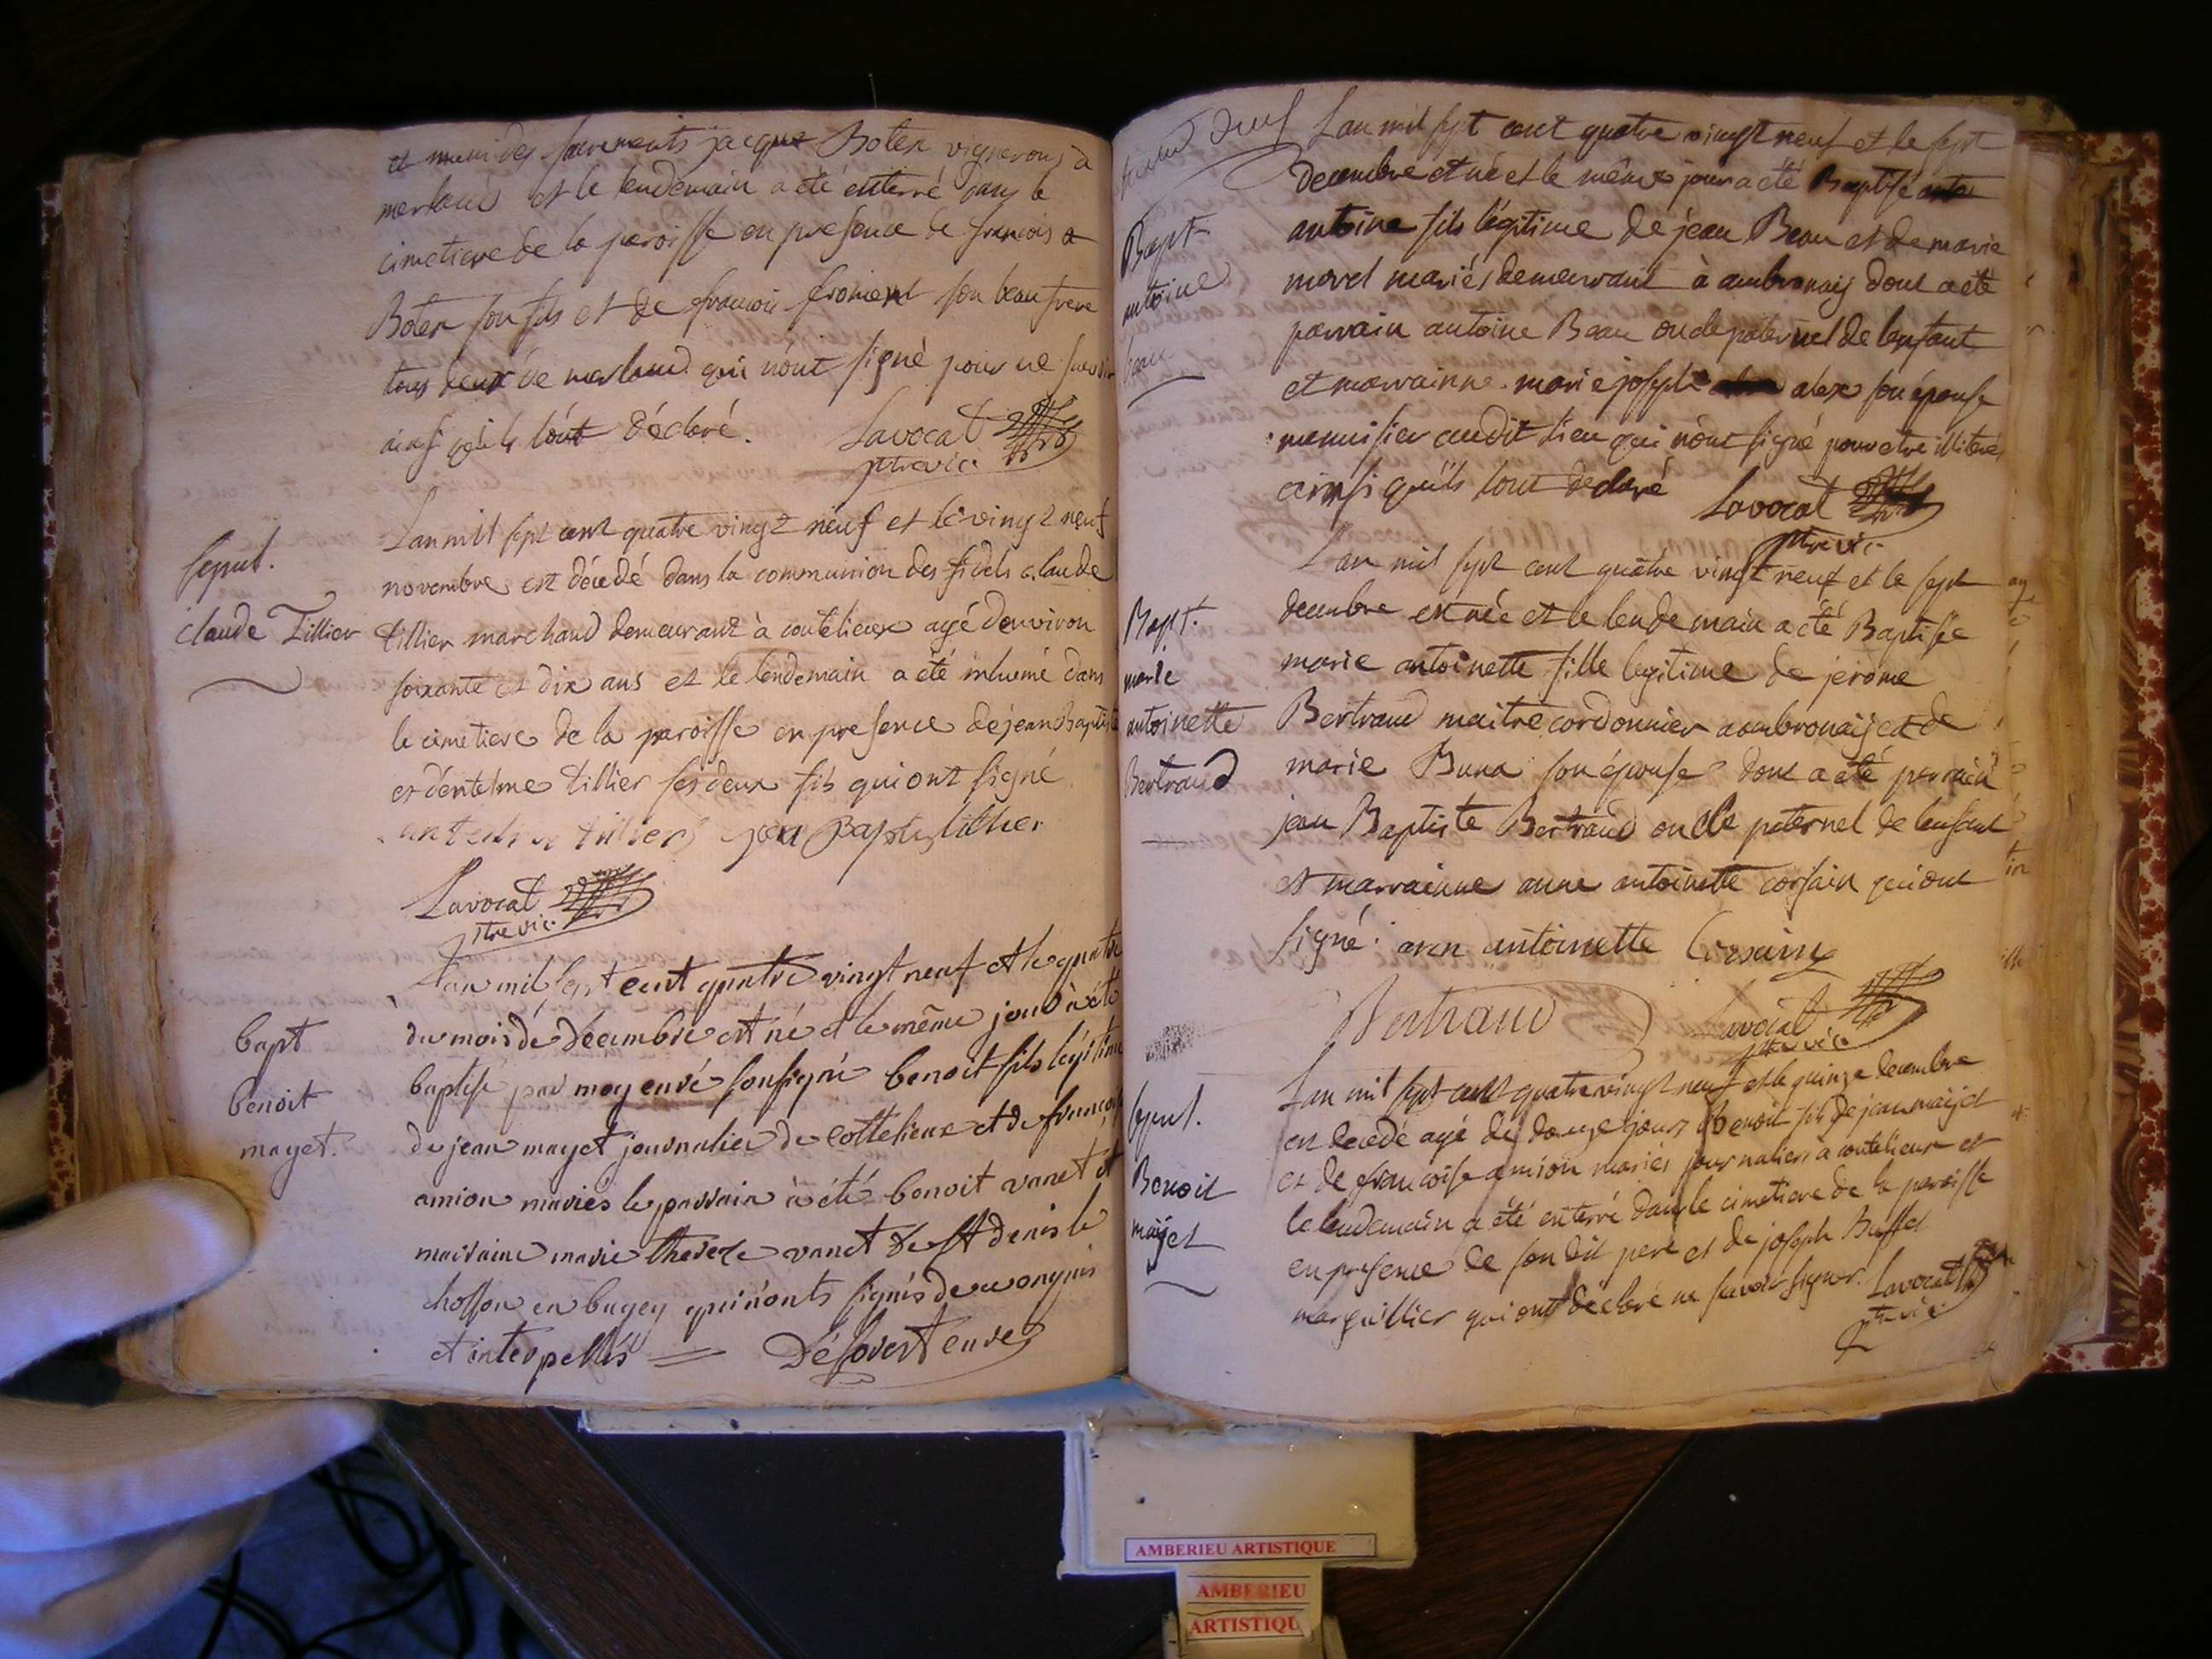 et muni des sacrements jacque Botex vigneron à
merland et le lendemain a été enterré dans le
cimetiere de la paroisse en presence de francois
Botex son fils et de francois froment son beau frere
tous deux de merland qui n'ont signé pour ne savoir
ainsi qu'ils l'ont déclaré. Lavocat
ptre vic.
Sepul.
claude Tillier
L'an mil sept cent quatre vingt neuf et le vingt neuf
novembre est décédé dans la communion des fidels claude
tillier marchand demeurant à coutelieux agé d'environ
soixante et dix ans et le lendemain a été inhumé dans
le cimetiere de la paroisse en presence de jean Baptiste
et d'entelme tillier ses deux fils qui ont signé
tillier jean Baptis tillier
Lavocat
ptre vic.
bapt
benoit
mayet.
L'an mil sept cent quatre vingt neuf et le quatre
du mois de decembre est né et le même jour à été
baptisé par moy curé soussigné benoit fils légitime
de jean mayet journalier de cottelieux et de françoise
amion mariés le parrain à été benoit vanet et
marraine marie therese vanet de st denis le
chosson en bugey qui n'onts signés de ce enquis
et interpellés = Désovert curé
neuf
Bapt.
antoine
beau
L'an mil sept cent quatre vingt neuf et le sept
decembre est né et le même jour a été Baptisé
antoine fils légitime de jean Beau et de marie
morel mariés demeurant à ambronay dont a été
parrain antoine Beau oncle paternel de l'enfant
et marrainne marie josephe alex son épouse
menuisier audit lieu qui n'ont signé pour etre illiteres
ainsi qu'ils l'ont declaré Lavocat
ptre vic.
Bapt.
marie
antoinette
Bertrand
L'an mil sept cent quatre vingt neuf et le sept
decembre est née et le lendemain a été Baptisée
marie antoinette fille legitime de jerome
Bertrand maitre cordonnier a ambronay et de
marie Buna son épouse dont a été parrain
jean Baptiste Bertrand oncle paternel de l'enfant
et marrainne anne antoinette corsain qui ont
signé. ann antoinette Corsain
Bertrand Lavocat
ptre vic.
Sepul.
Benoit
maÿet
L'an mil sept cent quatre vingt neuf et le quinze decembre
est decedé agé de douze jours Benoit fils de jean maÿet
et de francoise amion mariés journaliers à coutelieux et
le lendemain a été enterré dans le cimetiere de la paroisse
en presence de son dit pere et de joseph Buffet
marguillier qui ont déclaré ne savoir signer. Lavocat
ptre vic.
AMBERIEU ARTISTIQUE
AMBERIEU
ARTISTIQU